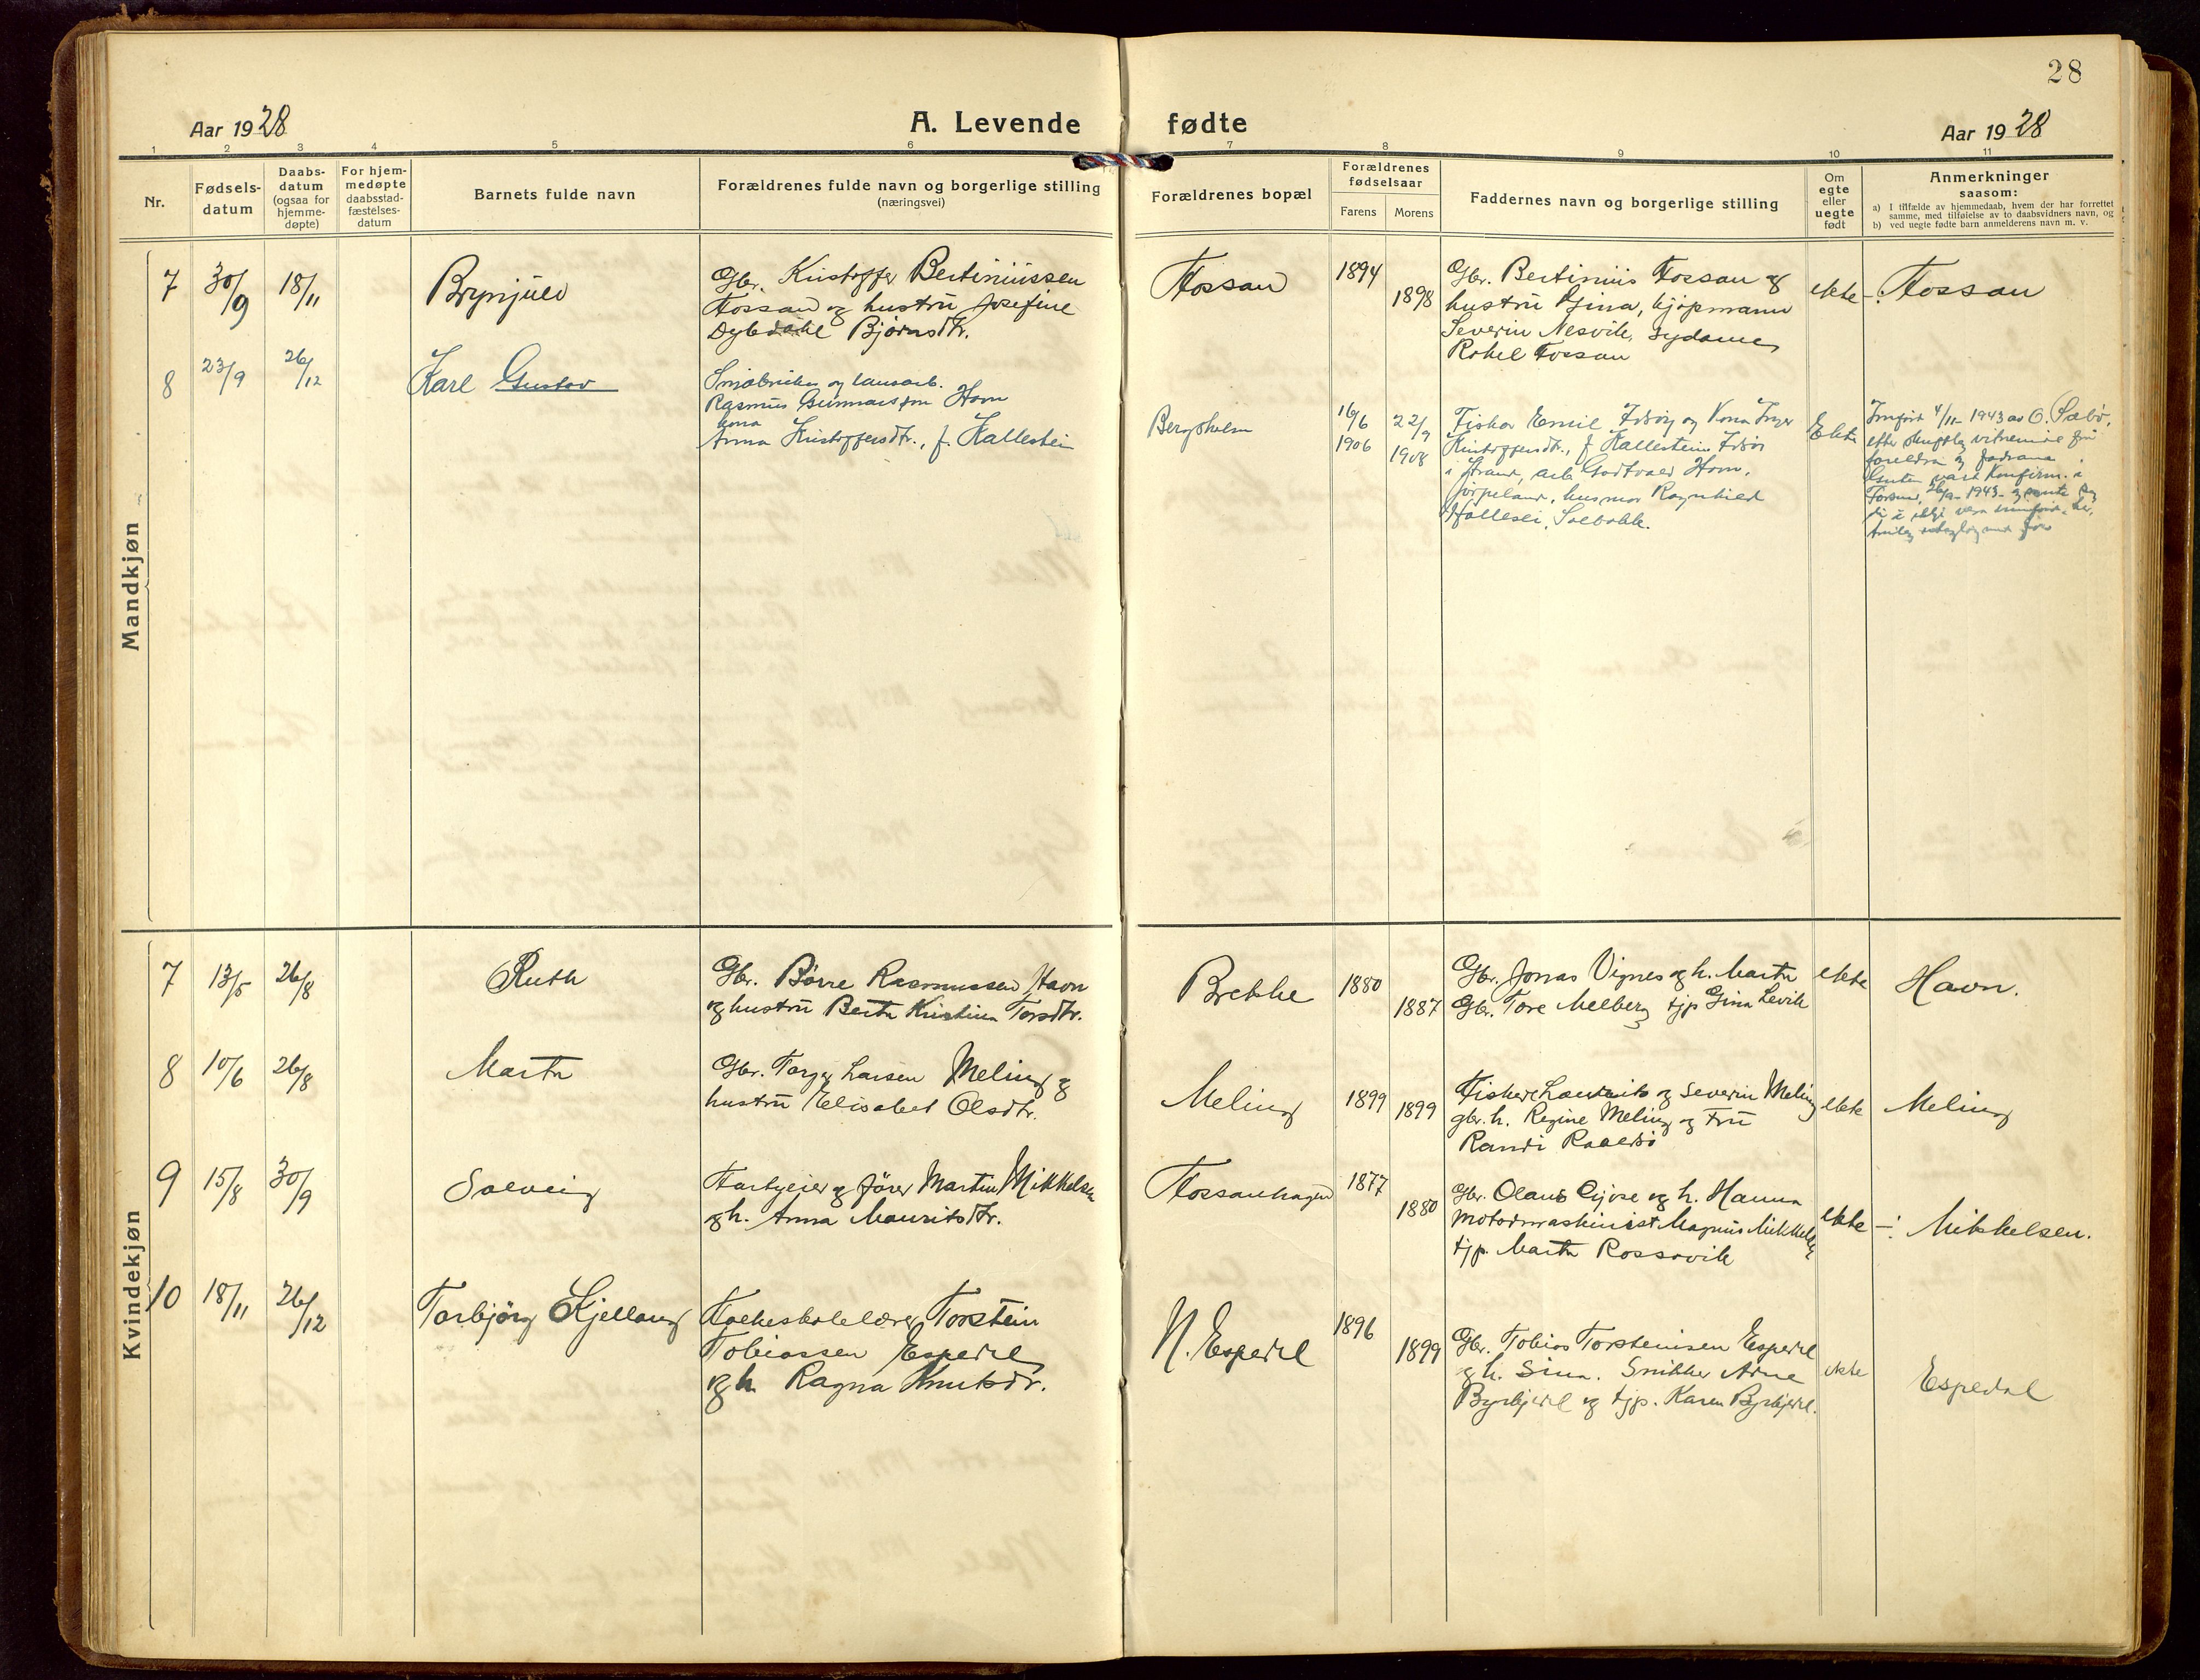 28
Aar 1928
A. Levende fødte
Aar 1928
1 2 3 4 5 6 7 8 9 10 11
Nr.
Fødsels-
datum
Daabs-
datum
(ogsaa for
hjemme-
døpte)
For hjem-
medøpte
daabsstad-
fæstelses-
datum
Barnets fulde navn
Forældrenes fulde navn og borgerlige stilling
(næringsvei)
Forældrenes bopæl
Forældrenes
fødselsaar
Farens
Morens
Faddernes navn og borgerlige stilling
Om
egte
eller
uegte
født
Anmerkninger
saasom:
a) I tilfælde av hjemmedaab, hvem der har forrettet
samme, med tilføielse av to daabsvidners navn, og
b) ved uegte fødte barn anmelderens navn m. v.
Mandkjøn
7
30/9
18/11
Brynjulv
Gbr. Kristoffer Bertiniussen
Fossan og hustru Josefine
Dybdahl Bjørnsdtr.
Fossan
1894
1898
Gbr. Bertinius Fossan og
hustru Gina, kjøpmann
Severin Nesvik, sydame
Rakel Fossan
ekte
Fossan
8
23/9
26/12
Karl Gustav
Småbruker og lausarb.
Rasmus Gunnarson Havn
kona
Anna Kristoffersdtr., f. Kallestein
Bergsholm
16/6
1906
22/9
1908
Fiskar Emil Idsøy og kona Inger
Kristoffersdtr., f Kallestein, Idsøy
i Strand, arb. Gudtvald Havn,
Jørpeland, husmor Ragnhild
Hallesli, Solbakk.
Ekte
Innført 4/11 1943 av O. Sæbö,
etter skriftleg vitnemål frå
foreldra og fadrane.
Guten vart konfirm. i
Forsand 26/9 1943
Kvindekjøn
7
13/5
26/8
Ruth
Gbr. Børre Rasmussen Havn
og hustru Berta Kristina Torsdtr.
Brekke
1880
1887
Gbr. Jonas Vignes og h. Marta
Gbr. Tore Melberg tjp Gina Levik
ekte
Havn.
8
10/6
26/8
Marta
Gbr. Torger Larsen Meling og
hustru Elisabet Olsdtr.
Meling
1899
1899
Fiskere Lauritz og Severin Meling
gbr. h. Regine Meling og Fru
Randi
ekte
Meling
9
15/8
30/9
Solveig
Fartøieier og fører Martin Mikkelsen
og h. Anna Mauritsdtr.
Fossanhagen
1877
1880
Gbr. Olaus Gjøse og h. Hanna
Motormaskinist Magnus Mikkelsen
tjp. Marta Rossavik
ekte
Mikkelsen.
10
18/11
26/12
Torbjørg Kjellaug
Folkeskolelærer Torstein
Tobiassen Espedal
og h. Ragna Knutsdr.
N. Espedal
1896
1899
Gbr. Tobias Torsteinsen Espedal
og h. Sina. Snikker Arne
Byrkjedal og tjp. Karen Byrkjedal.
ekte
Espedal